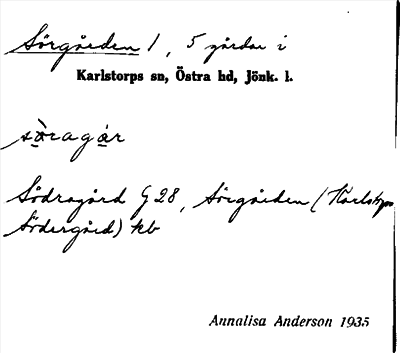 Sörgården 1, 5 gårdar i
Karlstorps sn, Östra hd, Jönk. l.
sö̀ragár
Södragård G 28, Sörgården (Karlstorps
Södergård) kb
Annalisa Anderson 1935